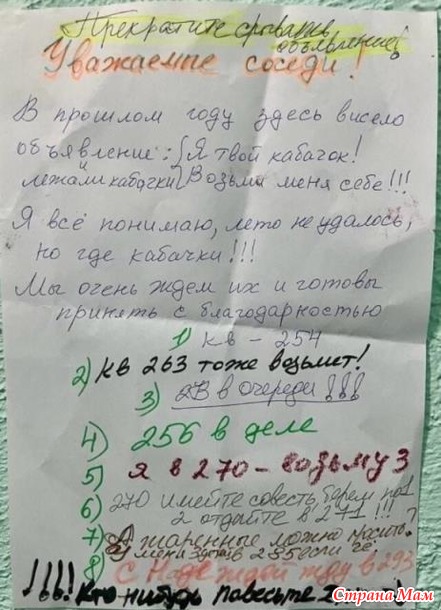 Прекратите срывать
объявление!
Уважаемые соседи!
В прошлом году здесь висело
объявление: Я твой кабачок!
и
лежали кабачки Возьми меня себе!!!
Я всё понимаю, лето не удалось,
но где кабачки!!!
Мы очень ждем их и готовы
принять с благодарностью
1) кв - 254
2) кв 263 тоже возьмет!
3) 2В в очереди!!!
4) 256 в деле
5) Я в 270 - возьму 3
6) 270 имейте совесть, берем по 1
2 отдайте в 271!!!
7) А жаренные можно носить?
У меня зубов 285 если чё
8 С Надеждой жду в 293
!!!! Кто нибудь повесьте
Страна Мам